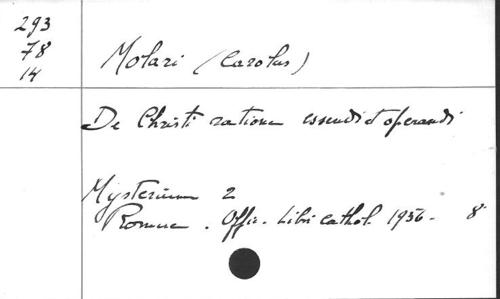 293
78
14
Molari (Carolus)
De Christi ratione essendi et operandi
Mysterium 2
Romae. Offic. Libri cathol. 1956. 8°